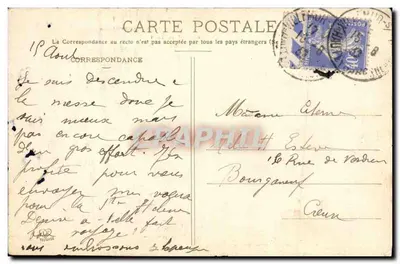 CARTE POSTALE
La Correspondance au recto n'est pas acceptée par tous les pays étrangers
CORRESPONDANCE
15 Aout
Je suis descendue à
la messe donc je
suis mieux mais
pas encore capable
d'un gros effort. J'en
profite pour vous
envoyer mes vœux
pour la Ste
a-t-elle fait
voyage
vous embrassons
Madame Etienne
16 Rue de Verdun
Bourganeuf
Creuse